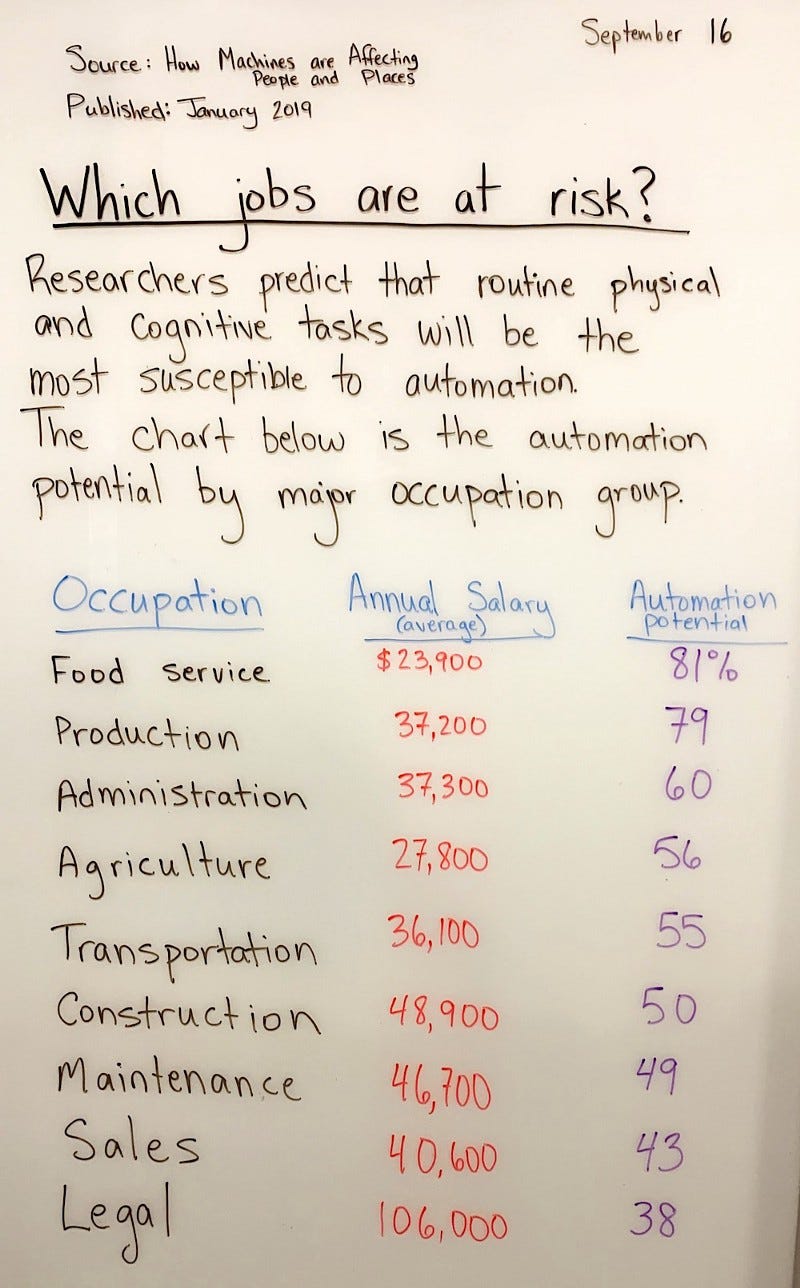 September 16
Source: How Machines are Affecting
People and Places
Published: January 2019
Which jobs are at risk?
Researchers predict that routine physical
and cognitive tasks will be the
most susceptible to automation.
The chart below is the automation
potential by major occupation group.
Occupation Annual Salary Automation
(average) potential
Food service $23,900 81%
Production 37,200 79
Administration 37,300 60
Agriculture 27,800 56
Transportation 36,100 55
Construction 48,900 50
Maintenance 46,700 49
Sales 40,600 43
Legal 106,000 38